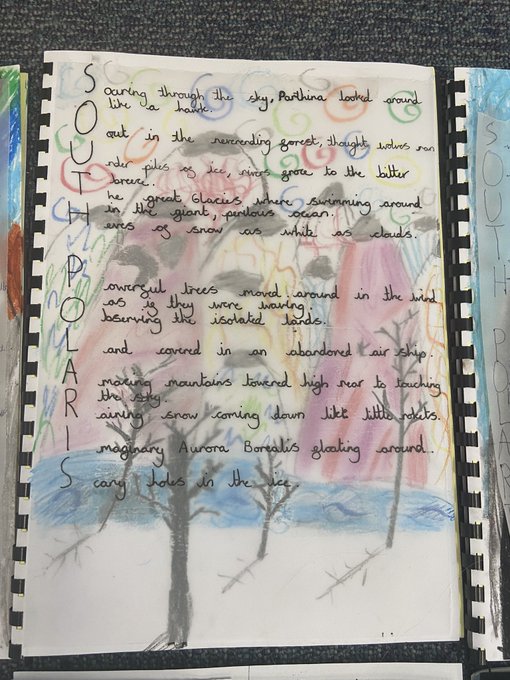 SOUTH POLARIS
oaring through the sky, Parthina looked around
like a hawk.
out in the neverending forest, thought wolves ran
nder piles of ice, rivers groze to the bitter
breeze.
he great Glaciers where swimming around
in the giant, perilous ocean.
eres of snow as white as clouds.
owerful trees moved around in the wind
as if they were waving.
bserving the isolated lands.
and covered in an abandoned air ship.
mazing mountains towered high near to touching
the sky.
aining snow coming down like little rockets.
maginary Aurora Borealis floating around.
cary holes in the ice.
SOUTH POLARI